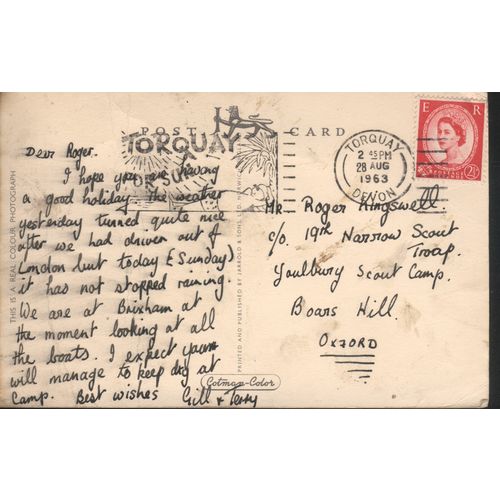 POST CARD
TORQUAY
FOR SUN
TORQUAY
2 45 PM
28 AUG
1963
DEVON
E R
POSTAGE
REVENUE
2½
Dear Roger.
I hope you are having
a good holiday the weather
yesterday turned quite nice
after we had driven out of
London but today (Sunday)
it has not stopped raining.
We are at Brixham at
the moment looking at all
the boats. I expect you
will manage to keep dry at
Camp. Best wishes Gill & Terry
Mr Roger Kingswell
c/o. 19th Narrow Scout
Troop.
Youlbury Scout Camp.
Boars Hill.
OXFORD
THIS IS A REAL COLOUR PHOTOGRAPH
PRINTED AND PUBLISHED BY JARROLD & SONS LTD. NORWICH
Cotman-Color